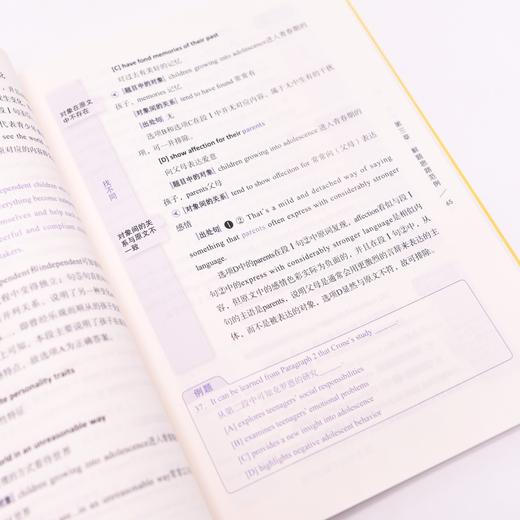 [C] have fond memories of their past
对过去有美好的记忆
[题目中的对象] children growing into adolescence进入青春期的
孩子，memories 记忆
[对象间的关系] tend to have found 常常有
[出处句] 无
选项B和选项C在段1中并无对应内容，属于无中生有的干扰
项，可一并排除。
[D] show affection for their parents
向父母表达爱意
[题目中的对象] children growing into adolescence 进入青春期的
孩子，parents父母
[对象间的关系] tend to show offeciton for 常常向（父母）表达
感情
[出处句] ❶ ② That's a mild and detached way of saying
something that parents often express with considerably stronger
language.
选项D中的parents在段1句②中原词复现，affection看似与段1
句②中的express with considerably stronger language是相似内
容，但原文中的感情色彩实际为负面的，并且在段1句②中，从
句的主语是parents，说明父母是通常会用更激烈的言辞来表达的主
体，而不是被表达的对象，选项D显然与原文不符，故可排除。
对象在原文
中不存在
找不同
对象间的关
系与原文不
一致
例题
37. It can be learned from Paragraph 2 that Crone's study
从第二段中可知克罗恩的研究
[A] explores teenagers' social responsibilities
[B] examines teenagers' emotional problems
[C] provides a new insight into adolescence
[D] highlights negative adolescent behavior
第三章 解题思路范例
45
see the world
ependent children
verything become
mselves and help
werful and complian
akers.
the personality traits
orld in an unreasonable way
children growing into adolescence进入青春期
in an unreasonable way